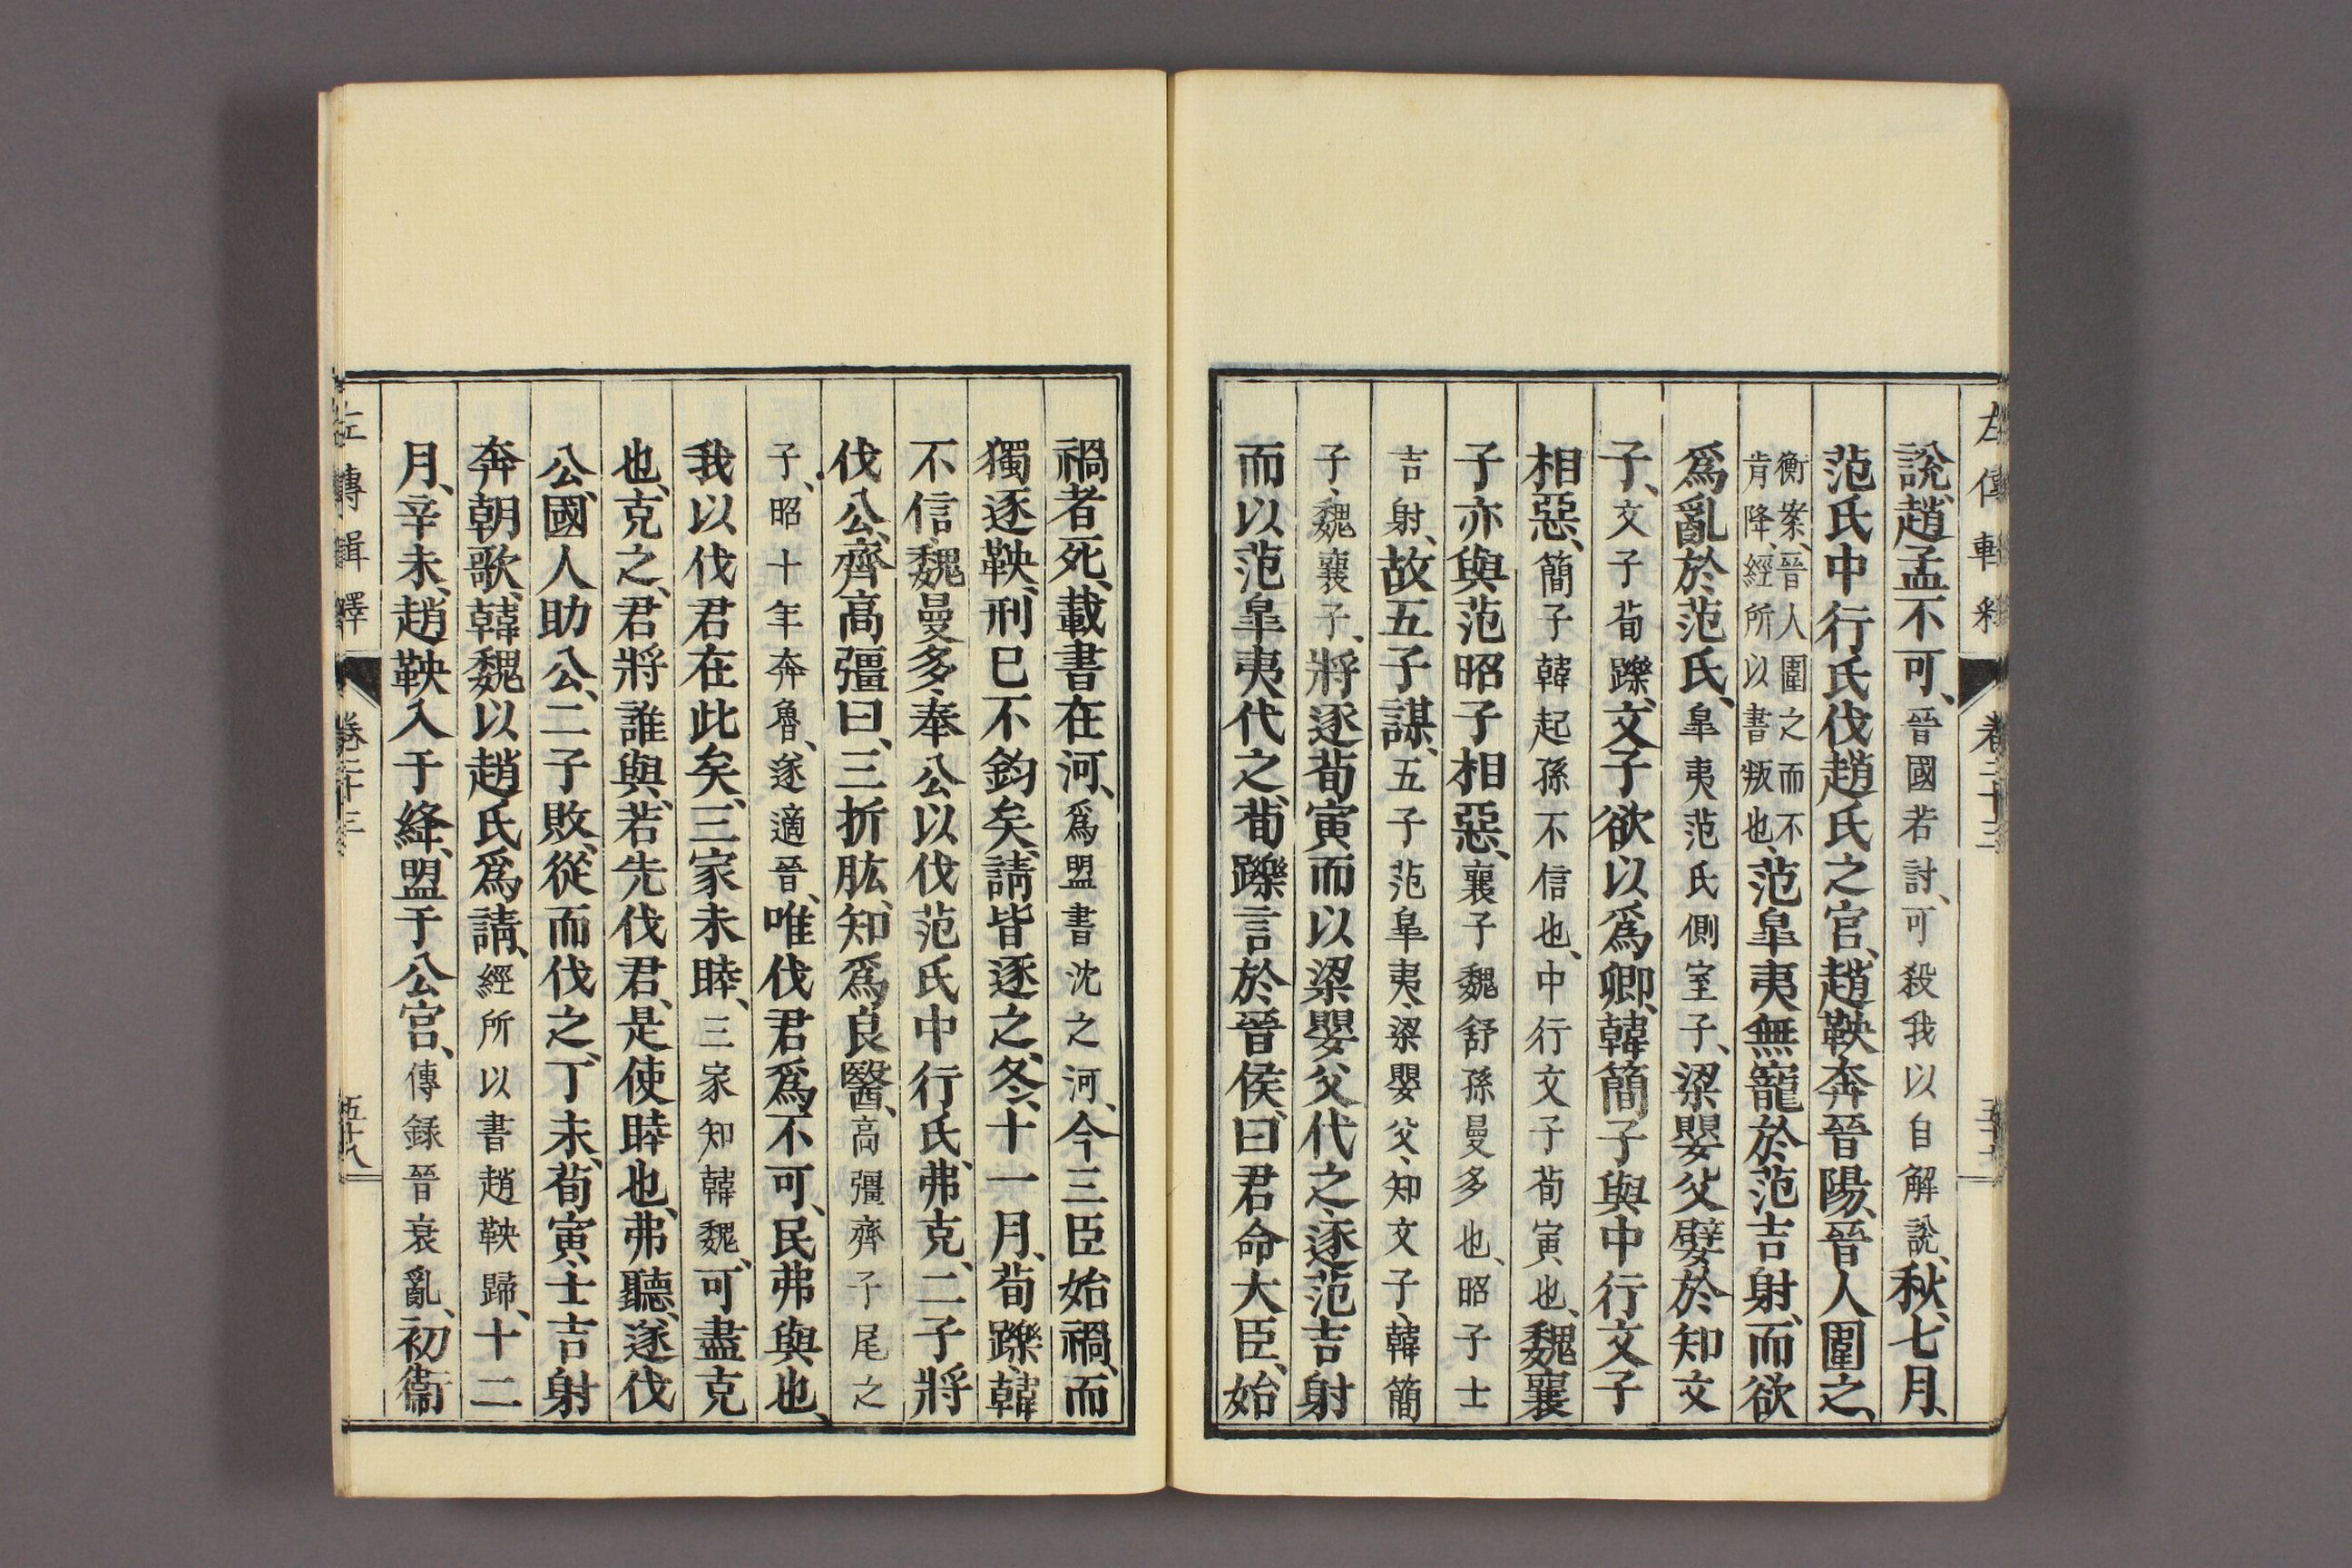 說、趙孟不可、晉國若討、可殺我以自解說、秋、七月、
范氏中行氏伐趙氏之宮、趙鞅奔晉陽、晉人圍之、
衡案、晉人圍之而不
肯降、經所以書叛也、范皐夷無寵於范吉射、而欲
爲亂於范氏、皐夷范氏側室子、梁嬰父嬖於知文
子、文子荀躒、文子欲以爲卿、韓簡子與中行文子
相惡、簡子韓起孫不信也、中行文子荀寅也、魏襄
子亦與范昭子相惡、襄子魏舒孫曼多也、昭子士
吉射、故五子謀、五子范皐夷、梁嬰父、知文子、韓簡
子、魏襄子、將逐荀寅而以梁嬰父代之、逐范吉射
而以范皐夷代之、荀躒言於晉侯曰、君命大臣、始
禍者死、載書在河、爲盟書沈之河、今三臣始禍、而
獨逐鞅、刑已不鈞矣、請皆逐之、冬、十一月、荀躒、韓
不信、魏曼多、奉公以伐范氏中行氏、弗克、二子將
伐公、齊高彊曰、三折肱、知爲良醫、高彊齊子尾之
子、昭十年奔魯、遂適晉、唯伐君爲不可、民弗與也、
我以伐君在此矣、三家未睦、三家知韓魏、可盡克
也、克之、君將誰與、若先伐君、是使睦也、弗聽、遂伐
公、國人助公、二子敗、從而伐之、丁未、荀寅、士吉射
奔朝歌、韓魏以趙氏爲請、經所以書趙鞅歸、十二
月、辛未、趙鞅入于絳、盟于公宮、傳錄晉衰亂、初衞
左傳輯釋
卷二十三
五十八